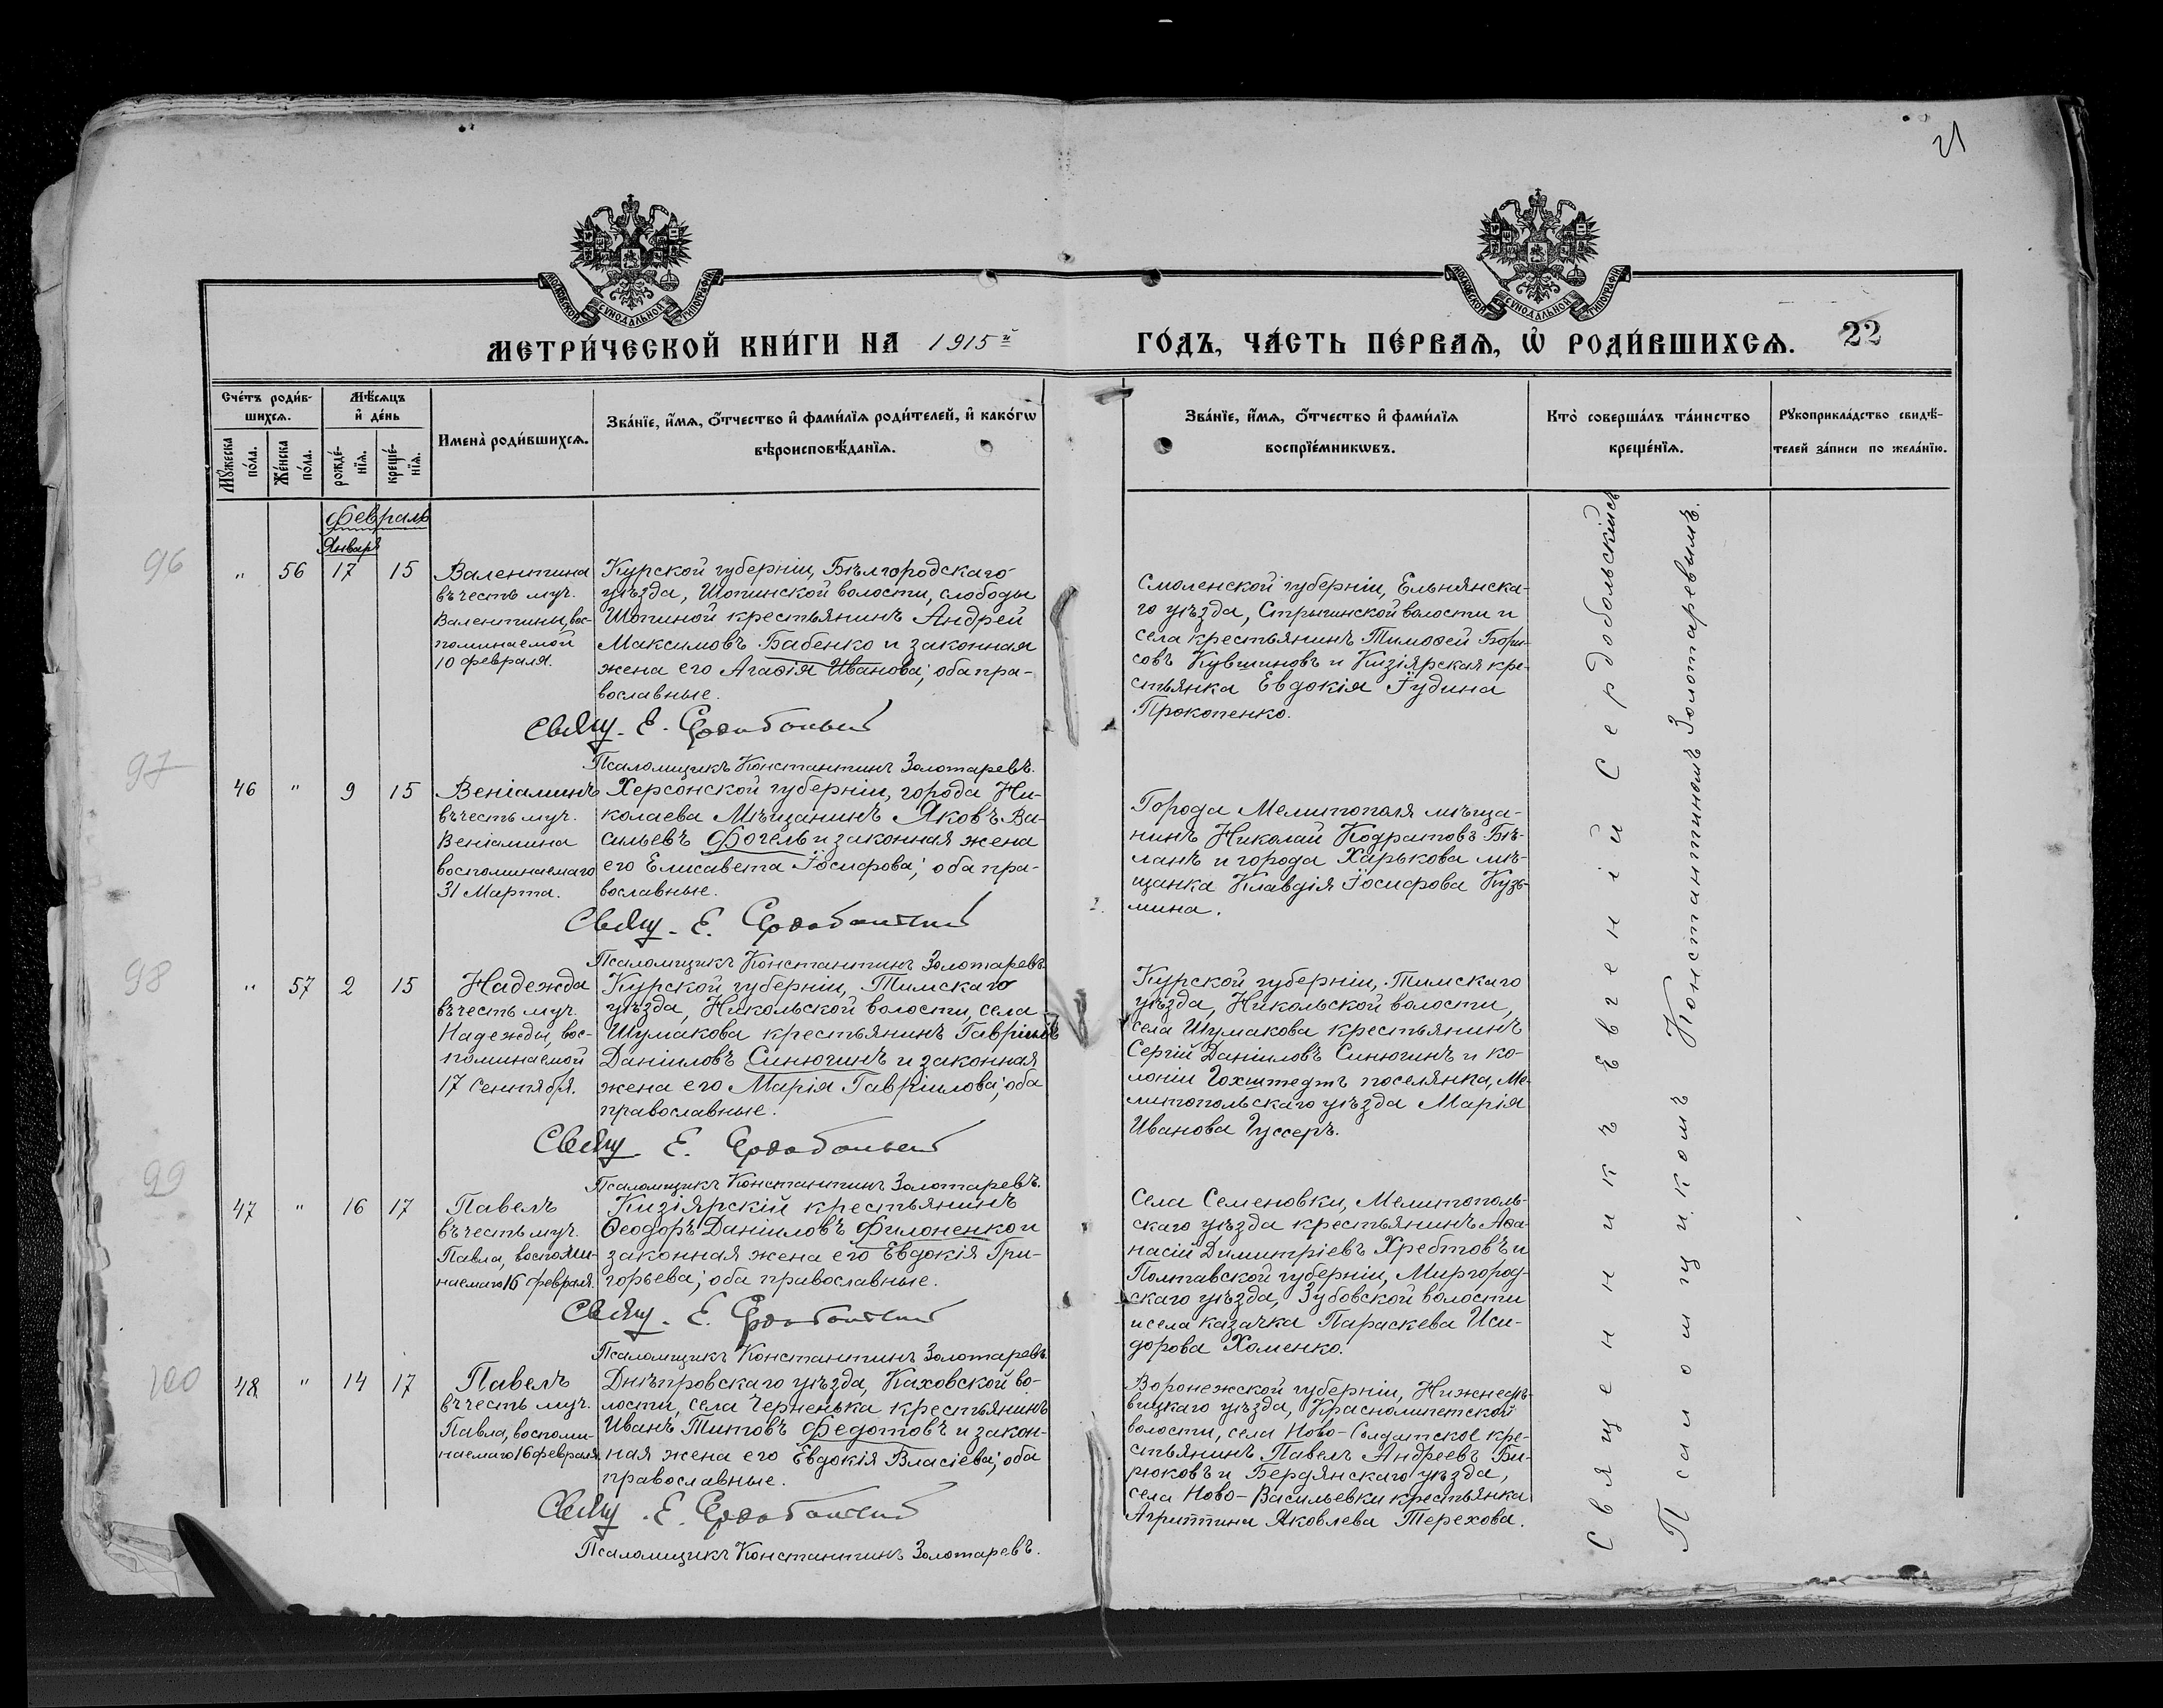 21
МОСКОВСКОЙ СУНОДАЛЬНОЙ ТИПОГРАФІИ
МОСКОВСКОЙ СУНОДАЛЬНОЙ ТИПОГРАФІИ
МЕТРИ́ЧЕСКОЙ КНИ́ГИ НА 1915й
ГО́ДЪ, ЧА́СТЬ ПЕ́РВАѦ, Ѿ РОДИ́ВШИХСѦ. 22
Сче́тъ роди́в-
шихсѧ.
Мѣ́сѧцъ
и҆ де́нь
Мꙋ́жеска
по́ла.
Же́нска
по́ла.
рожде́-
нїѧ.
креще́-
нїѧ.
Имена̀ роди́вшихсѧ.
Зва́нїе, и҆́мѧ, ѻ҆́тчество и҆ фами́лїѧ роди́телей, и҆ како́гѡ
вѣроисповѣ́данїѧ.
Зва́нїе, и҆́мѧ, ѻ҆́тчество и҆ фами́лїѧ
воспрїе́мникѡвъ.
Кто̀ соверша́лъ та́инство
креще́нїѧ.
Рꙋкоприкла́дство свидѣ́-
телей за́писи по жела́нїю.
Февраль
Января
96
" 56 17 15
Валентина
въ честь муч.
Валентины, вос-
поминаемой
10 февраля.
Курской губерніи, Бѣлгородскаго
уѣзда, Шопинской волости, слободы
Шопиной крестьянинъ Андрей
Максимовъ Бабенко и законная
жена его Агаѳія Иванова; оба пра-
вославные.
Свящ. Е. Сердобольскій
Псаломщикъ Константинъ Золотаревъ.
Смоленской губерніи, Ельнянска-
го уѣзда, Стрыгинской волости и
села крестьянинъ Тимоѳей Бори-
совъ Кувшиновъ и Кизіярская кре-
стьянка Евдокія Іудина
Прокопенко.
97
46 " 9 15
Веніаминъ
въ честь муч.
Веніамина
воспоминаемаго
31 Марта.
Херсонской губерніи, города Ни-
колаева Мѣщанинъ Яковъ Ва-
сильевъ Фогель и законная жена
его Елисавета Іосифова; оба пра-
вославные.
Свящ. Е. Сердобольскій
Псаломщикъ Константинъ Золотаревъ.
Города Мелитополя мѣща-
нинъ Николай Кодратовъ Бѣ-
ланъ и города Харькова мѣ-
щанка Клавдія Іосифова Кузь-
мина.
98
" 57 2 15
Надежда
въ честь муч.
Надежды, вос-
поминаемой
17 Сентября.
Курской губерніи, Тимскаго
уѣзда, Никольской волости, села
Шумакова крестьянинъ Гавріилъ
Даніиловъ Синюгинъ и законная
жена его Марія Гавріилова; оба
православные.
Свящ. Е. Сердобольскій
Псаломщикъ Константинъ Золотаревъ.
Курской губерніи, Тимскаго
уѣзда, Никольской волости,
села Шумакова крестьянинъ
Сергій Даніиловъ Синюгинъ и ко-
лоніи Гохштедтъ поселянка, Ме-
литопольскаго уѣзда Марія
Иванова Гуссеръ.
99
47 " 16 17
Павелъ
въ честь муч.
Павла, воспоми-
наемаго 16 февраля.
Кизіярскій крестьянинъ
Ѳеодоръ Даніиловъ Филоненко и
законная жена его Евдокія Гри-
горьева; оба православные.
Свящ. Е. Сердобольскій
Псаломщикъ Константинъ Золотаревъ.
Села Семеновки, Мелитополь-
скаго уѣзда крестьянинъ Аѳа-
насій Димитріевъ Хребтовъ и
Полтавской губерніи, Миргород-
скаго уѣзда, Зубовской волости
и села казачка Параскева Иси-
дорова Хоменко.
100
48 " 14 17
Павелъ
въ честь муч.
Павла, воспоми-
наемаго 16 февраля.
Днѣпровскаго уѣзда, Каховской во-
лости, села Черненька крестьянинъ
Иванъ Титовъ Федотовъ и закон-
ная жена его Евдокія Власіева; оба
православные.
Свящ. Е. Сердобольскій
Псаломщикъ Константинъ Золотаревъ.
Воронежской губерніи, Нижнедѣ-
вицкаго уѣзда, Краснолипетской
волости, села Ново-Солдатское кре-
стьянинъ Павелъ Андреевъ Би-
рюковъ и Бердянскаго уѣзда,
села Ново-Васильевки крестьянка
Агриппина Яковлева Терехова.
Священникъ Евгеній Сердобольскій съ
Псаломщикомъ Константиномъ Золотаревымъ.